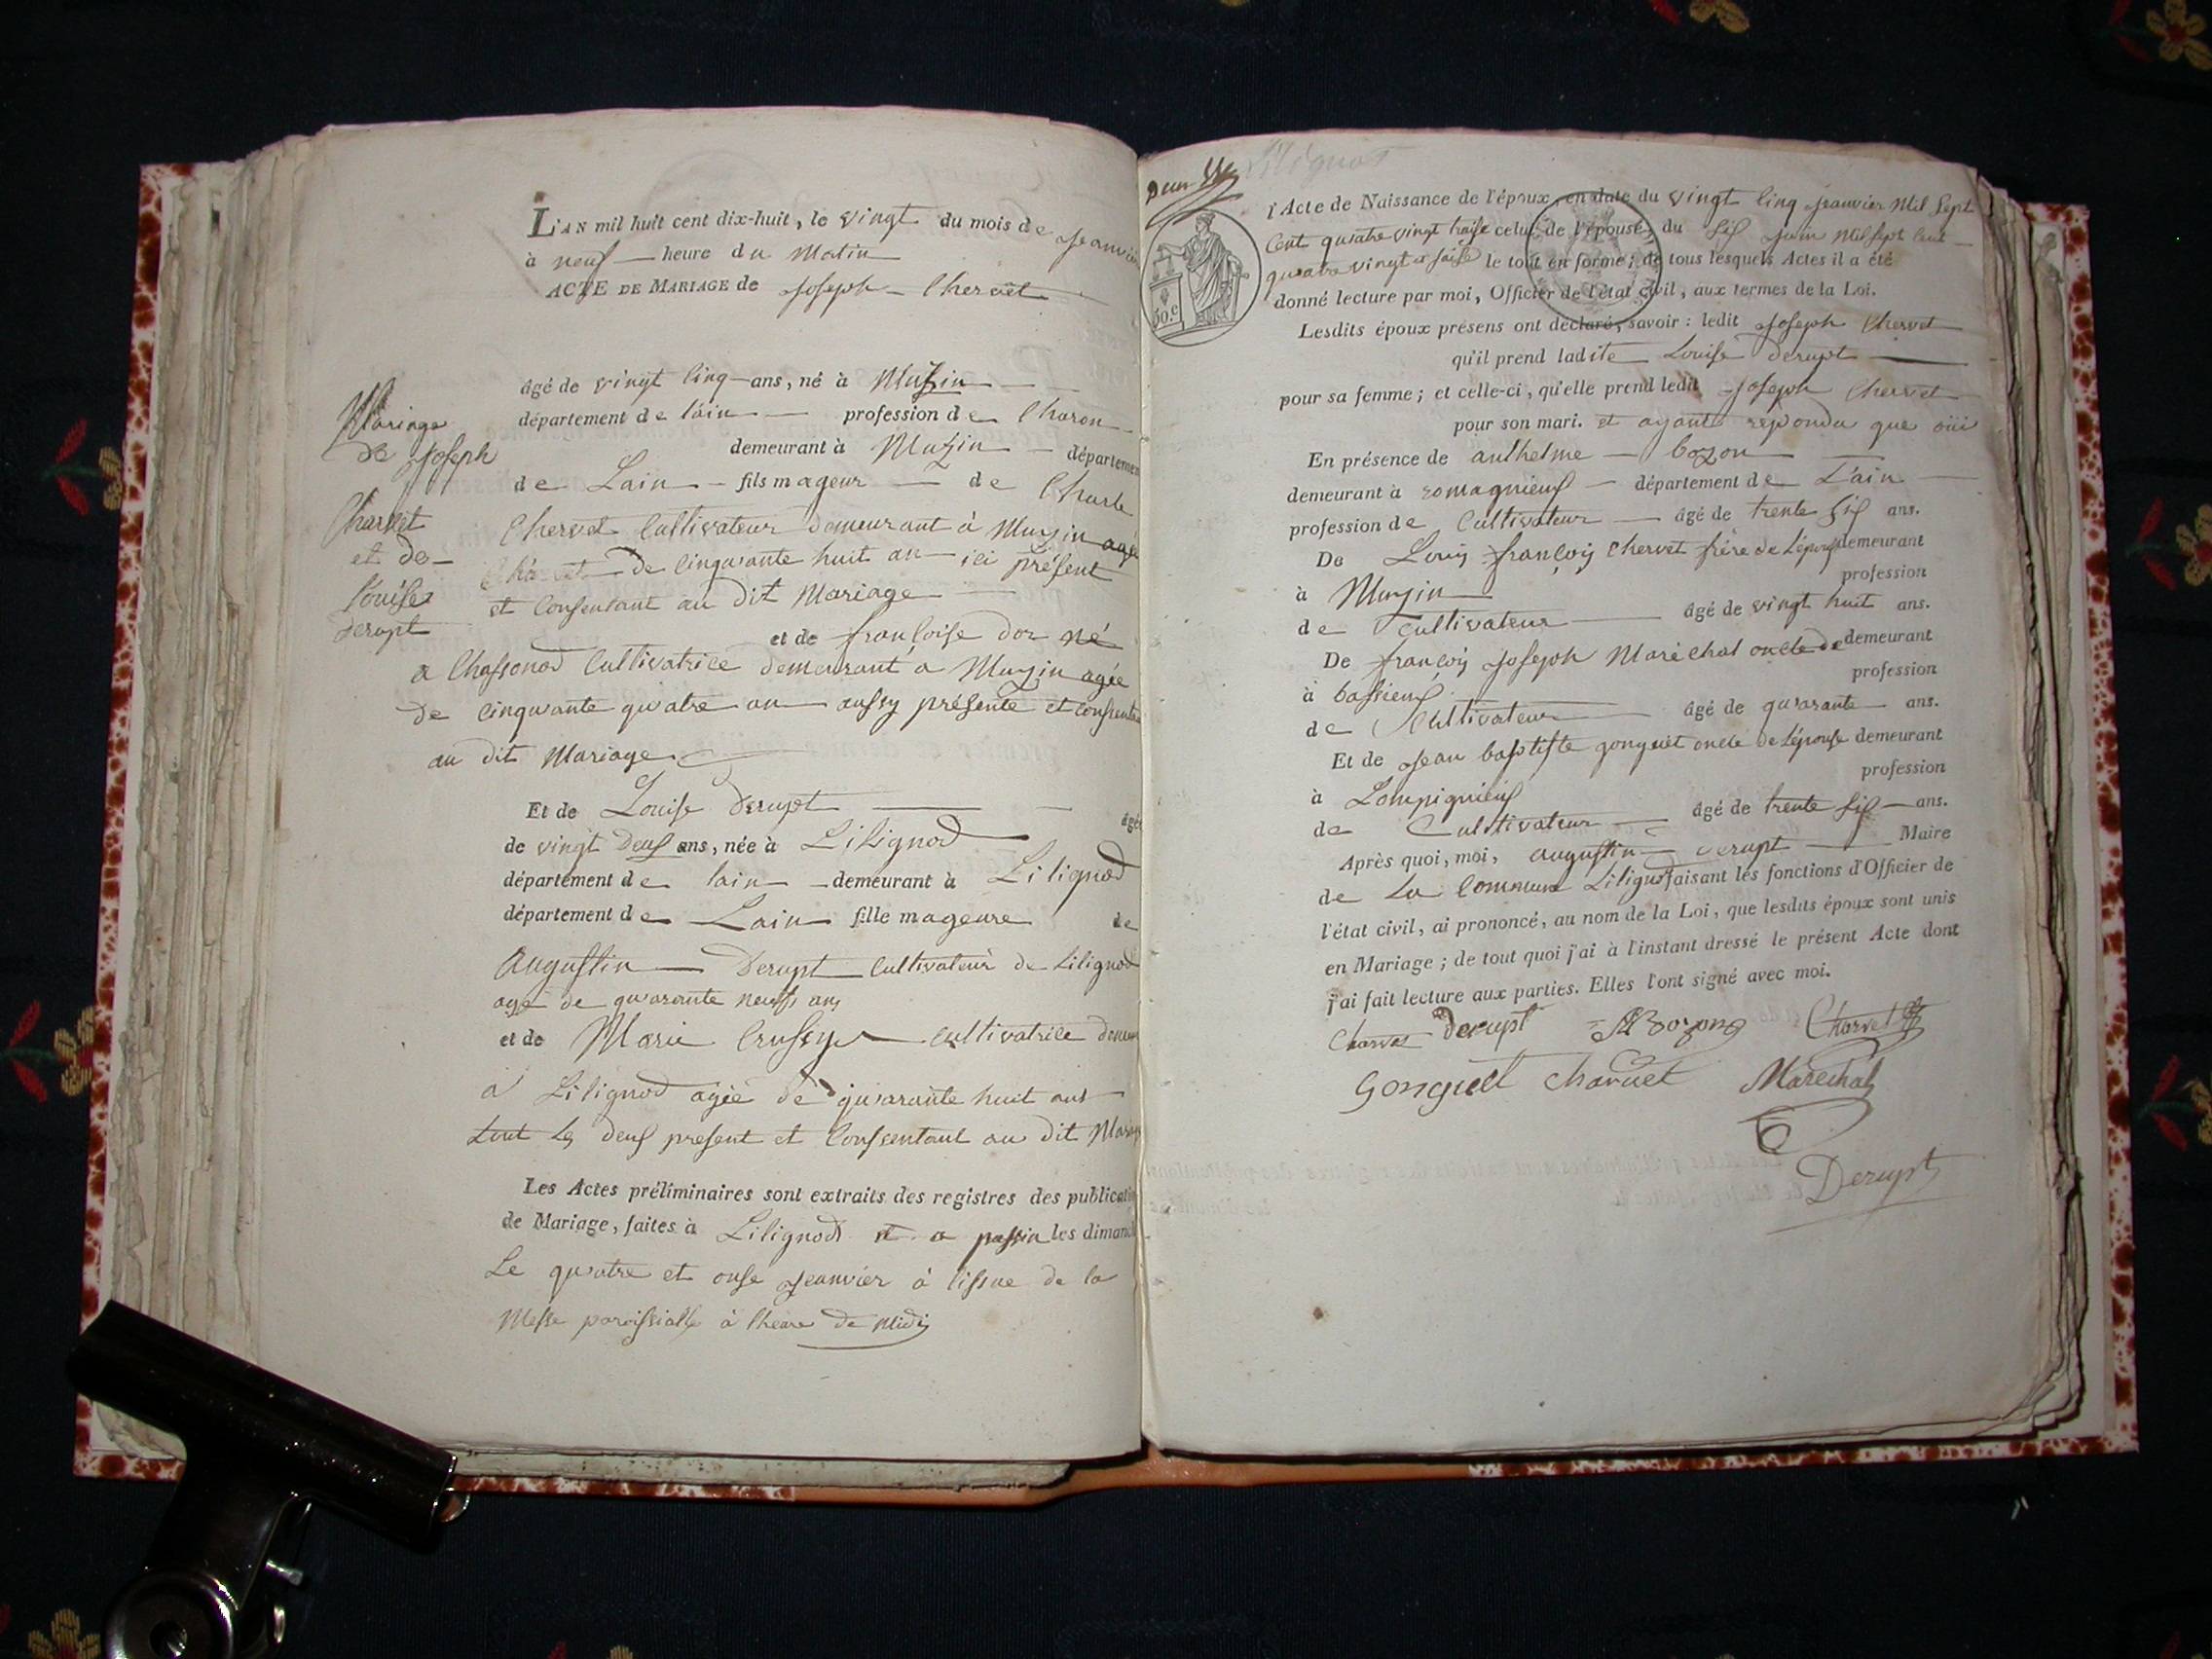 L'AN mil huit cent dix-huit, le vingt du mois de Jeanvier
à neuf heure du Matin
ACTE DE MARIAGE de Joseph Chervet
Mariage
de Joseph
Charvet
et de
Louise
Derupt
âgé de vingt Cinq ans, né à Muzin
département de lain profession de Charon
demeurant à Muzin département
de Lain fils mageur de Charle
Chervet Cultivateur demeurant à Muzin agé
de Cinquante huit an ici présent
et Consentant au dit Mariage
et de françoise Dor né
a Chassonod Cultivatrice demeurant a Muzin agée
de Cinquante quatre an aussy présente et Consente
au dit Mariage
Et de Louise Derupt âgée
de vingt Deux ans, née à Lilignod
département de lain demeurant à Lilignod
département de Lain fille mageure de
Augustin Derupt Cultivateur de Lilignod
agé de quarante neuf ans
et de Marie Crussy Cultivatrice demeu
a Lilignod agée de quarante huit ans
tout les deux présent et Consentant au dit Mariage
Les Actes préliminaires sont extraits des registres des publication
de Mariage, faites à Lilignod et a passin les dimanch
Le quatre et onse Jeanvier à lissue de la
Messe paroissialle à lheure de Midi
l'Acte de Naissance de l'époux, en date du vingt Cinq Jeanvier Mil Sept
Cent quatre vingt traise celui de l'épouse, du Six Juin Mil Sept Cent
quatre vingt et saise le tout en forme; de tous lesquels Actes il a été
donné lecture par moi, Officier de l'état civil, aux termes de la Loi.
50.c
Lesdits époux présens ont déclaré, savoir: ledit Joseph Chervet
qu'il prend ladite Louise Derupt
pour sa femme; et celle-ci, qu'elle prend ledit Joseph Chervet
pour son mari. et ayant repondu que oüi
En présence de anthelme bozon
demeurant à romagnieux département de L'ain
profession de Cultivateur âgé de trente Six ans.
De Louis françois Chervet frère de L'époux demeurant
à Muzin profession
de Cultivateur âgé de vingt huit ans.
De françois Joseph Maréchal oncle de demeurant
à bassieux profession
de Cultivateur âgé de quarante ans.
Et de Jean baptiste gonguet oncle de Lépouse demeurant
à Lompignieux profession
de Cultivateur âgé de trente Six ans.
Après quoi, moi, augustin Derupt Maire
de La Commune Lilignod faisant les fonctions d'Officier de
l'état civil, ai prononcé, au nom de la Loi, que lesdits époux sont unis
en Mariage; de tout quoi j'ai à l'instant dressé le présent Acte dont
j'ai fait lecture aux parties. Elles l'ont signé avec moi.
Charvet Derupt Bozon Charvet
Gonguet Charvet Maréchal
Derupt